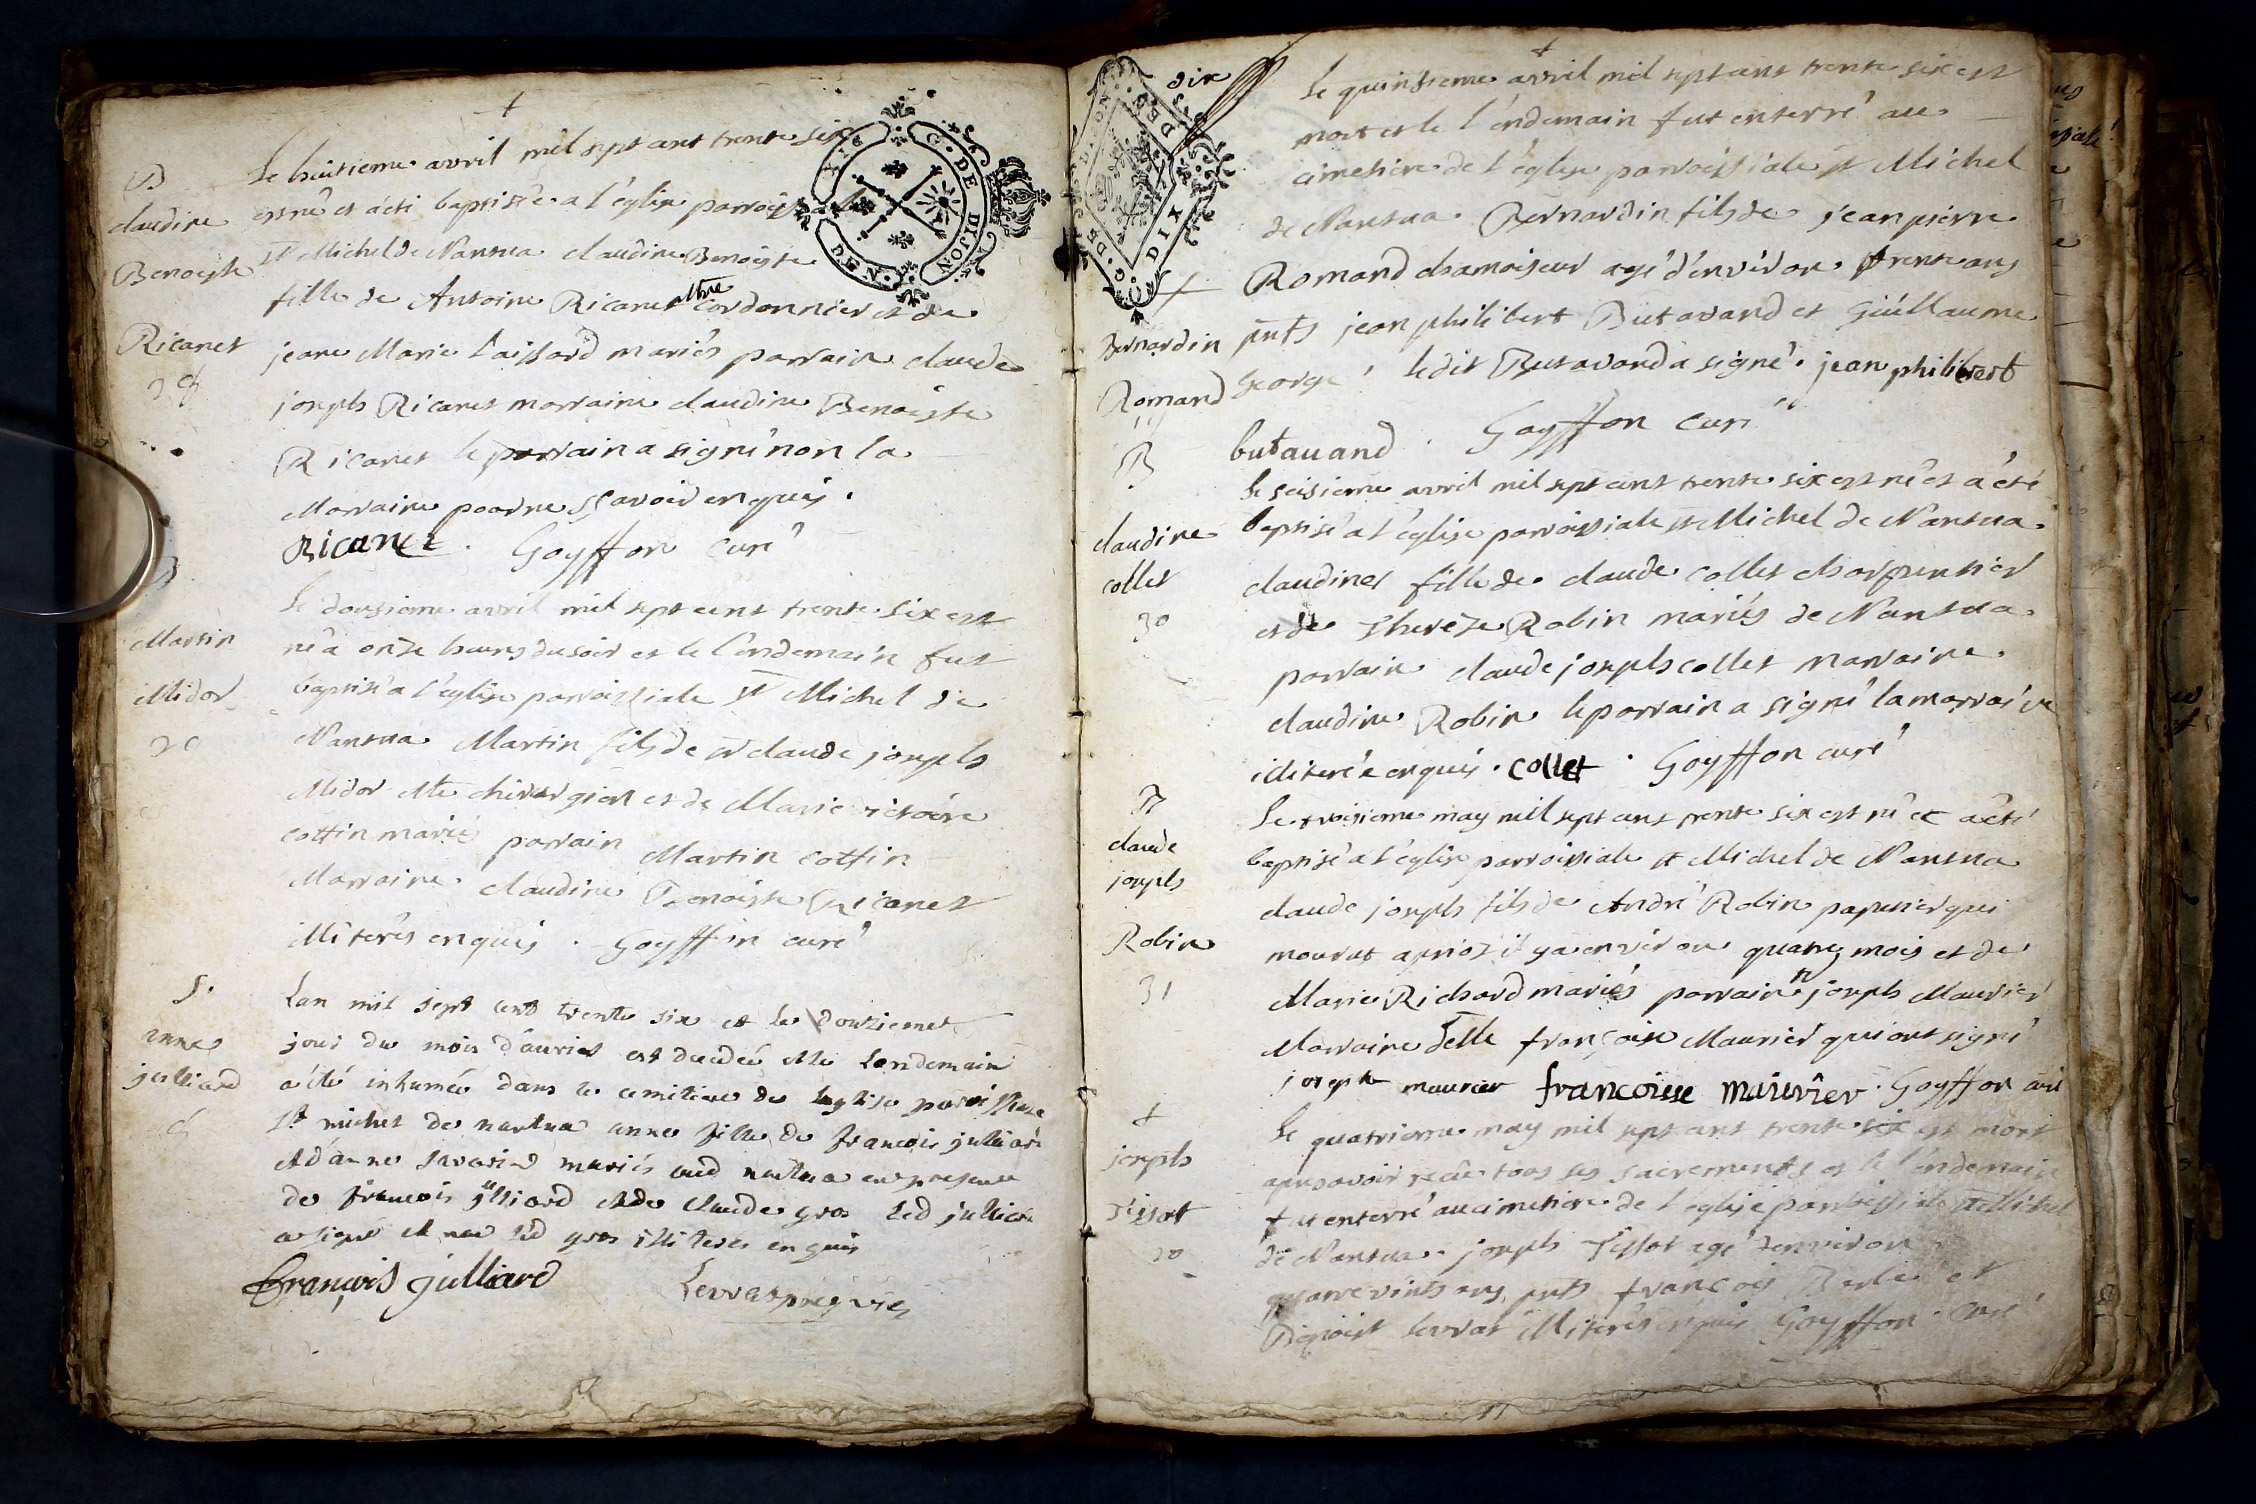 B
claudine
Benoyste
Ricanet
le huitieme avril mil sept cent trente six
est né et a eté baptisée a l'église parroissiale
St Michel de Nantua claudine Benoiste
fille de Antoine Ricanet Mtre Cordonnier et de
jeane Marie laissard mariés parrain claude
joseph Ricanet marraine claudine Benoiste
Ricanet le parrain a signé non la
Marraine pour ne sçavoir enquis.
Ricanet. Goyffon curé
Martin
Midor
le dousieme avril mil sept cent trente six est
né a onze heures du soir et le l'endemain fut
baptisé a l'église parroissiale St Michel de
Nantua Martin fils de Sr claude joseph
Midor Mtre chirurgien et de Marie victoire
cottin mariés parrain Martin cottin
Marraine claudine Benoiste Ricanet
illiterés enquis. Goyffon curé
S.
anne
julliard
Lan mil sept cent trente six et le douziemet
jour du mois d'auriel est decedeé et le lendemain
a été inhumée dans le cemitiere de leglise parroissiale
St michel de nantua anne fille de francois julliard
et d'anne savarin mariés aud nantua en presence
de francois julliard et de claude gros led julliard
a signé et non led gros illiteres enquis
François Julliard
six
le quinsieme avril mil sept cent trente six est
mort et le l'endemain fut enterré au
cimetiere de l'église parroissiale St Michel
de Nantua Bernardin fils de jean pierre
Romand chamoiseur agé d'environ trente ans
pnts jean philibert Butavand et Guillaume
George ledit Butavand a signé. jean philibert
butauand. Goyffon curé
Bernardin
Romand
B
claudine
collet
30
le seisieme avril mil sept cent trente six est né et a été
baptisé a l'église parroissiale St Michel de Nantua
claudine fille de claude collet charpentier
et de Thereze Robin mariés de Nantua
parrain claude joseph collet marraine
claudine Robin le parrain a signé la marraine
illiterée enquis. collet. Goyffon curé
B
claude
joseph
Robin
31
Le troisieme may mil sept cent trente six est né et a été
baptisé a l'église parroissiale St Michel de Nantua
claude joseph fils de André Robin papetier qui
mourut a il y a environ quatre mois et de
Marie Richard mariés parrain Sr joseph Maurier
Marraine delle françoise Maurier qui ont signé
joseph maurier francoise maurier. Goyffon curé
joseph
Tissot
le quatrieme may mil sept cent trente six est mort
apres avoir reçu tous ses sacrements et le l'endemain
fut enterré au cimetiere de l'eglise parroissiale St Michel
de Nantua joseph Tissot agé d'environ
quatre vints ans pnts françois et
Benoist levrat illiterés enquis Goyffon. Curé